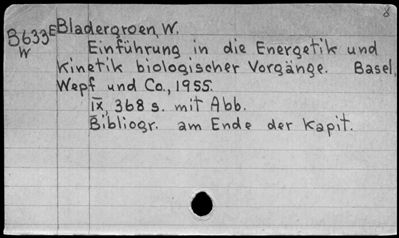 B633E Bladergroen, W.
W Einführung in die Energetik und
Kinetik biologischer Vorgänge. Basel,
Wepf und Co., 1955.
IX, 368 s. mit Abb.
Bibliogr. am Ende der Kapit.